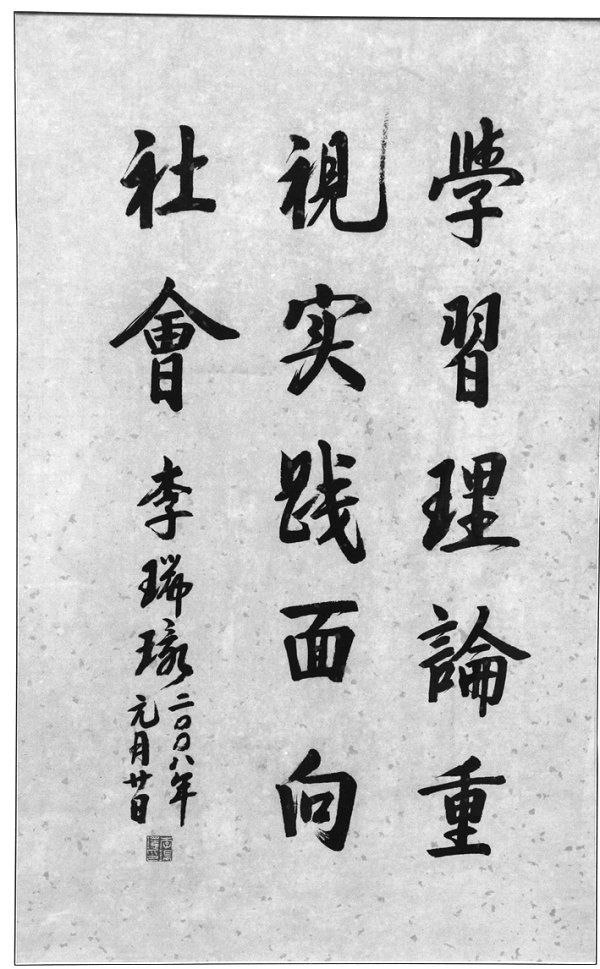 學習理論重
視实践面向
社會 李瑞環
二〇〇八年
元月廿日